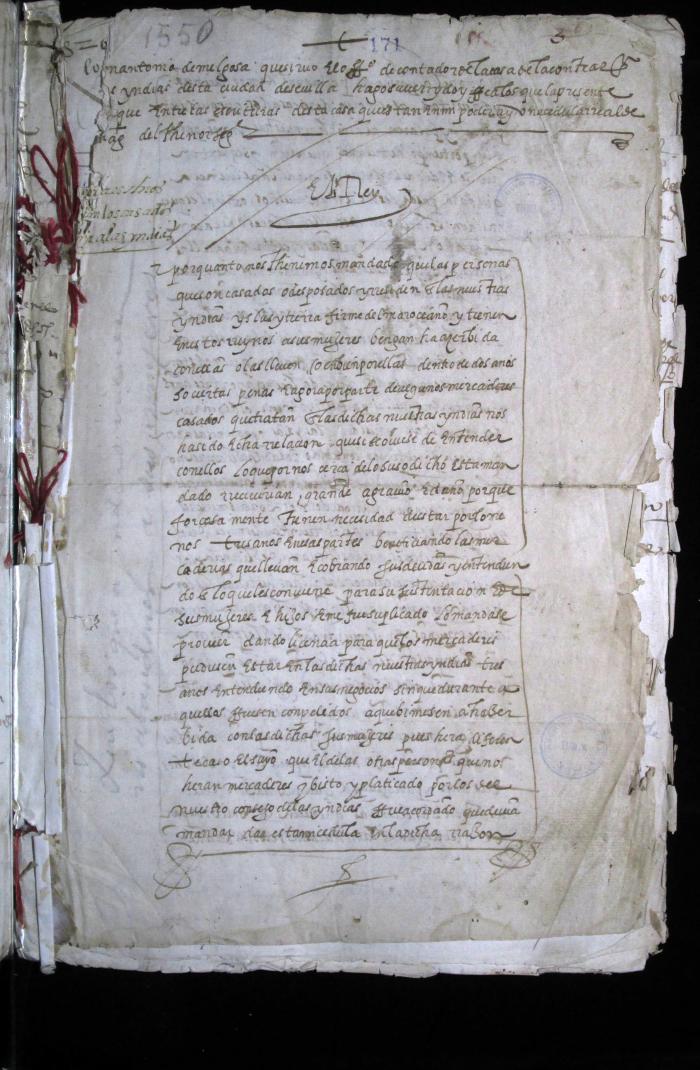 1550
171
3
Yo antonio de melgosa que siruo el offº de contador de la casa de la contrataçion
de yndias desta ciudad de seuilla hago sauer y doy ffee a los que la presente
que entre las escrituras desta casa que estan en mi poder ay vna cedula rreal de
mag del thenor sigᵉ
El Rey
los casados
a las mugeres
por quanto nos thenemos mandado que las personas
que son casados o desposados y rresiden en las nuestras
yndias yslas y tierra firme del mar oceano y tienen
en estos rreynos a sus mugeres bengan ha açer bida
con ellas o las lleuen o enbien por ellas dentro de dos años
so ciertas penas e agora por parte de algunos mercaderes
casados que tratan en las dichas nuestras yndias nos
ha sido echa rrelacion que si se obiese de entender
con ellos lo que por nos cerca de lo suso dicho esta man
dado rreciuirian grande agrauio e daño porque
forcosamente tienen necesidad de estar por lo me
nos tres años en esas partes beneficiando las mer
caderias que lleuan e cobrando sus deudas y entendien
do en lo que les conuiene para su sustentacion e de
sus mugeres e hijos e me fue suplicado lo mandase
proueer dando licencia para que los mercaderes
pudiesen estar en las dichas nuestras yndias tres
años entendiendo en sus negocios sin que durante a
quellos ffuesen conpelidos a que biniesen a haser
bida con las dichas sus mugeres pues hera diferen
te caso el suyo que el de las otras personas que no
heran mercaderes e bisto y platicado por los del
nuestro consejo de las yndias ffue acordado que deuia
mandar dar esta mi cedula en la dicha rrazon